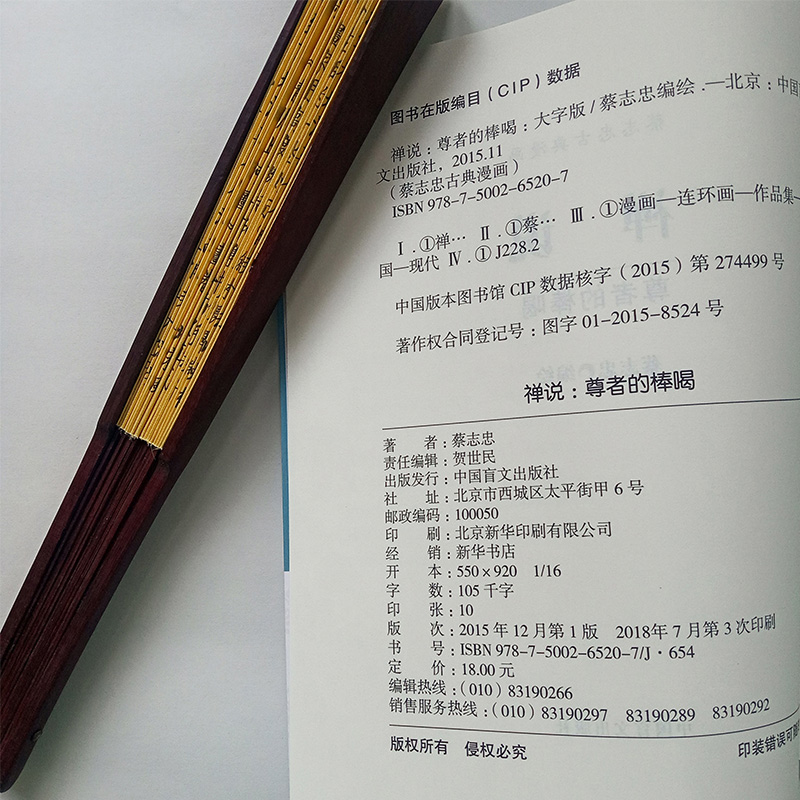 图书在版编目(CIP)数据
禅说：尊者的棒喝：大字版/蔡志忠编绘.—北京：中国
文出版社，2015.11
(蔡志忠古典漫画)
ISBN 978-7-5002-6520-7
Ⅰ.①禅… Ⅱ.①蔡… Ⅲ.①漫画—连环画—作品集—
国—现代 Ⅳ.①J228.2
中国版本图书馆 CIP 数据核字(2015)第 274499号
著作权合同登记号：图字 01-2015-8524 号
禅说：尊者的棒喝
著 者：蔡志忠
责任编辑：贺世民
出版发行：中国盲文出版社
社 址：北京市西城区太平街甲 6 号
邮政编码：100050
印 刷：北京新华印刷有限公司
经 销：新华书店
开 本：550×920 1/16
字 数：105 千字
印 张：10
版 次：2015 年 12 月第 1 版 2018年 7 月第 3 次印刷
书 号：ISBN 978-7-5002-6520-7/J·654
定 价：18.00 元
编辑热线：(010) 83190266
销售服务热线：(010) 83190297 83190289 83190292
版权所有 侵权必究
印装错误可随